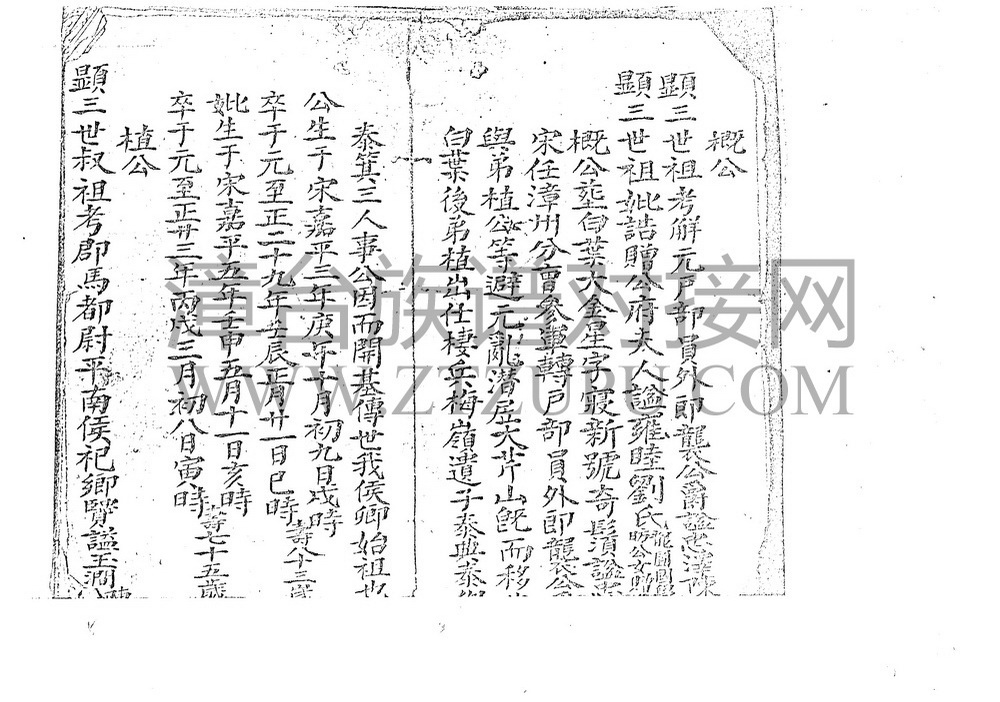 概公
顯三世祖考解元戶部員外郎襲公爵謚忠
顯三世祖妣誥贈公府夫人謚雍睦劉氏
概公塟白葉大金星字寢新號奇鬚謚忠
宋任漳州分曹參軍轉戶部員外郎襲公
與弟植公等避元亂潛居大芹山旣而移
白葉後弟植出仕棲兵梅嶺遺子泰興泰
泰箕三人事公因而開基傳世我侯卿始祖也
公生于宋嘉平三年庚午十月初九日戌時
卒于元至正二十九年壬辰正月廿一日巳時
壽八十三歲
妣生于宋嘉平五年壬申五月十一日亥時
卒于元至正廿三年丙戌三月初八日寅時
壽七十五歲
植公
顯三世叔祖考郡馬都尉平南侯祀鄉賢謚
漳台族谱对接网
WWW.ZTZUPU.COM